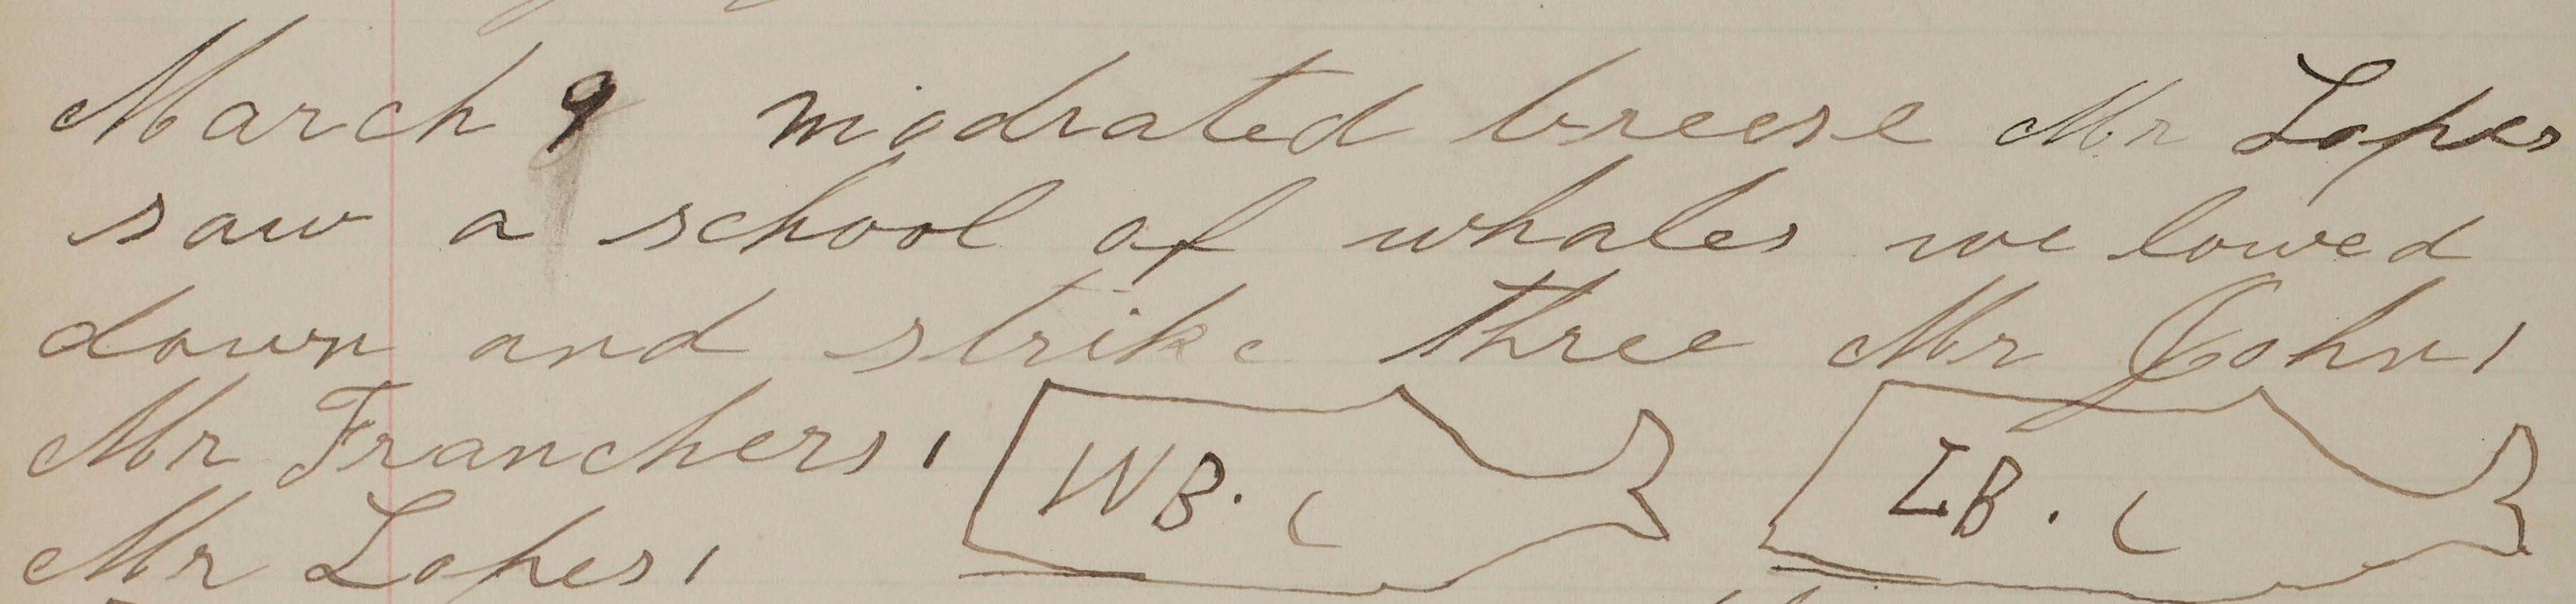 March 9 modrated breese Mr Lopes
saw a school of whales we lowed
down and strike three Mr John 1
Mr Franchers 1 WB. LB.
Mr Lopes 1